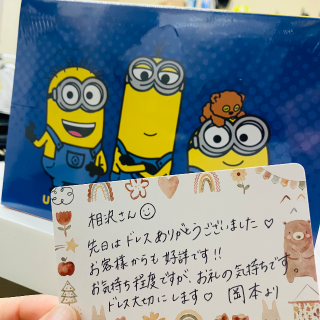 相沢さん☺
先日はドレスありがとうございました♡
お客様からも好評です!!
お気持ち程度ですが、お礼の気持ちです。
ドレス大切にします♡ 岡本より